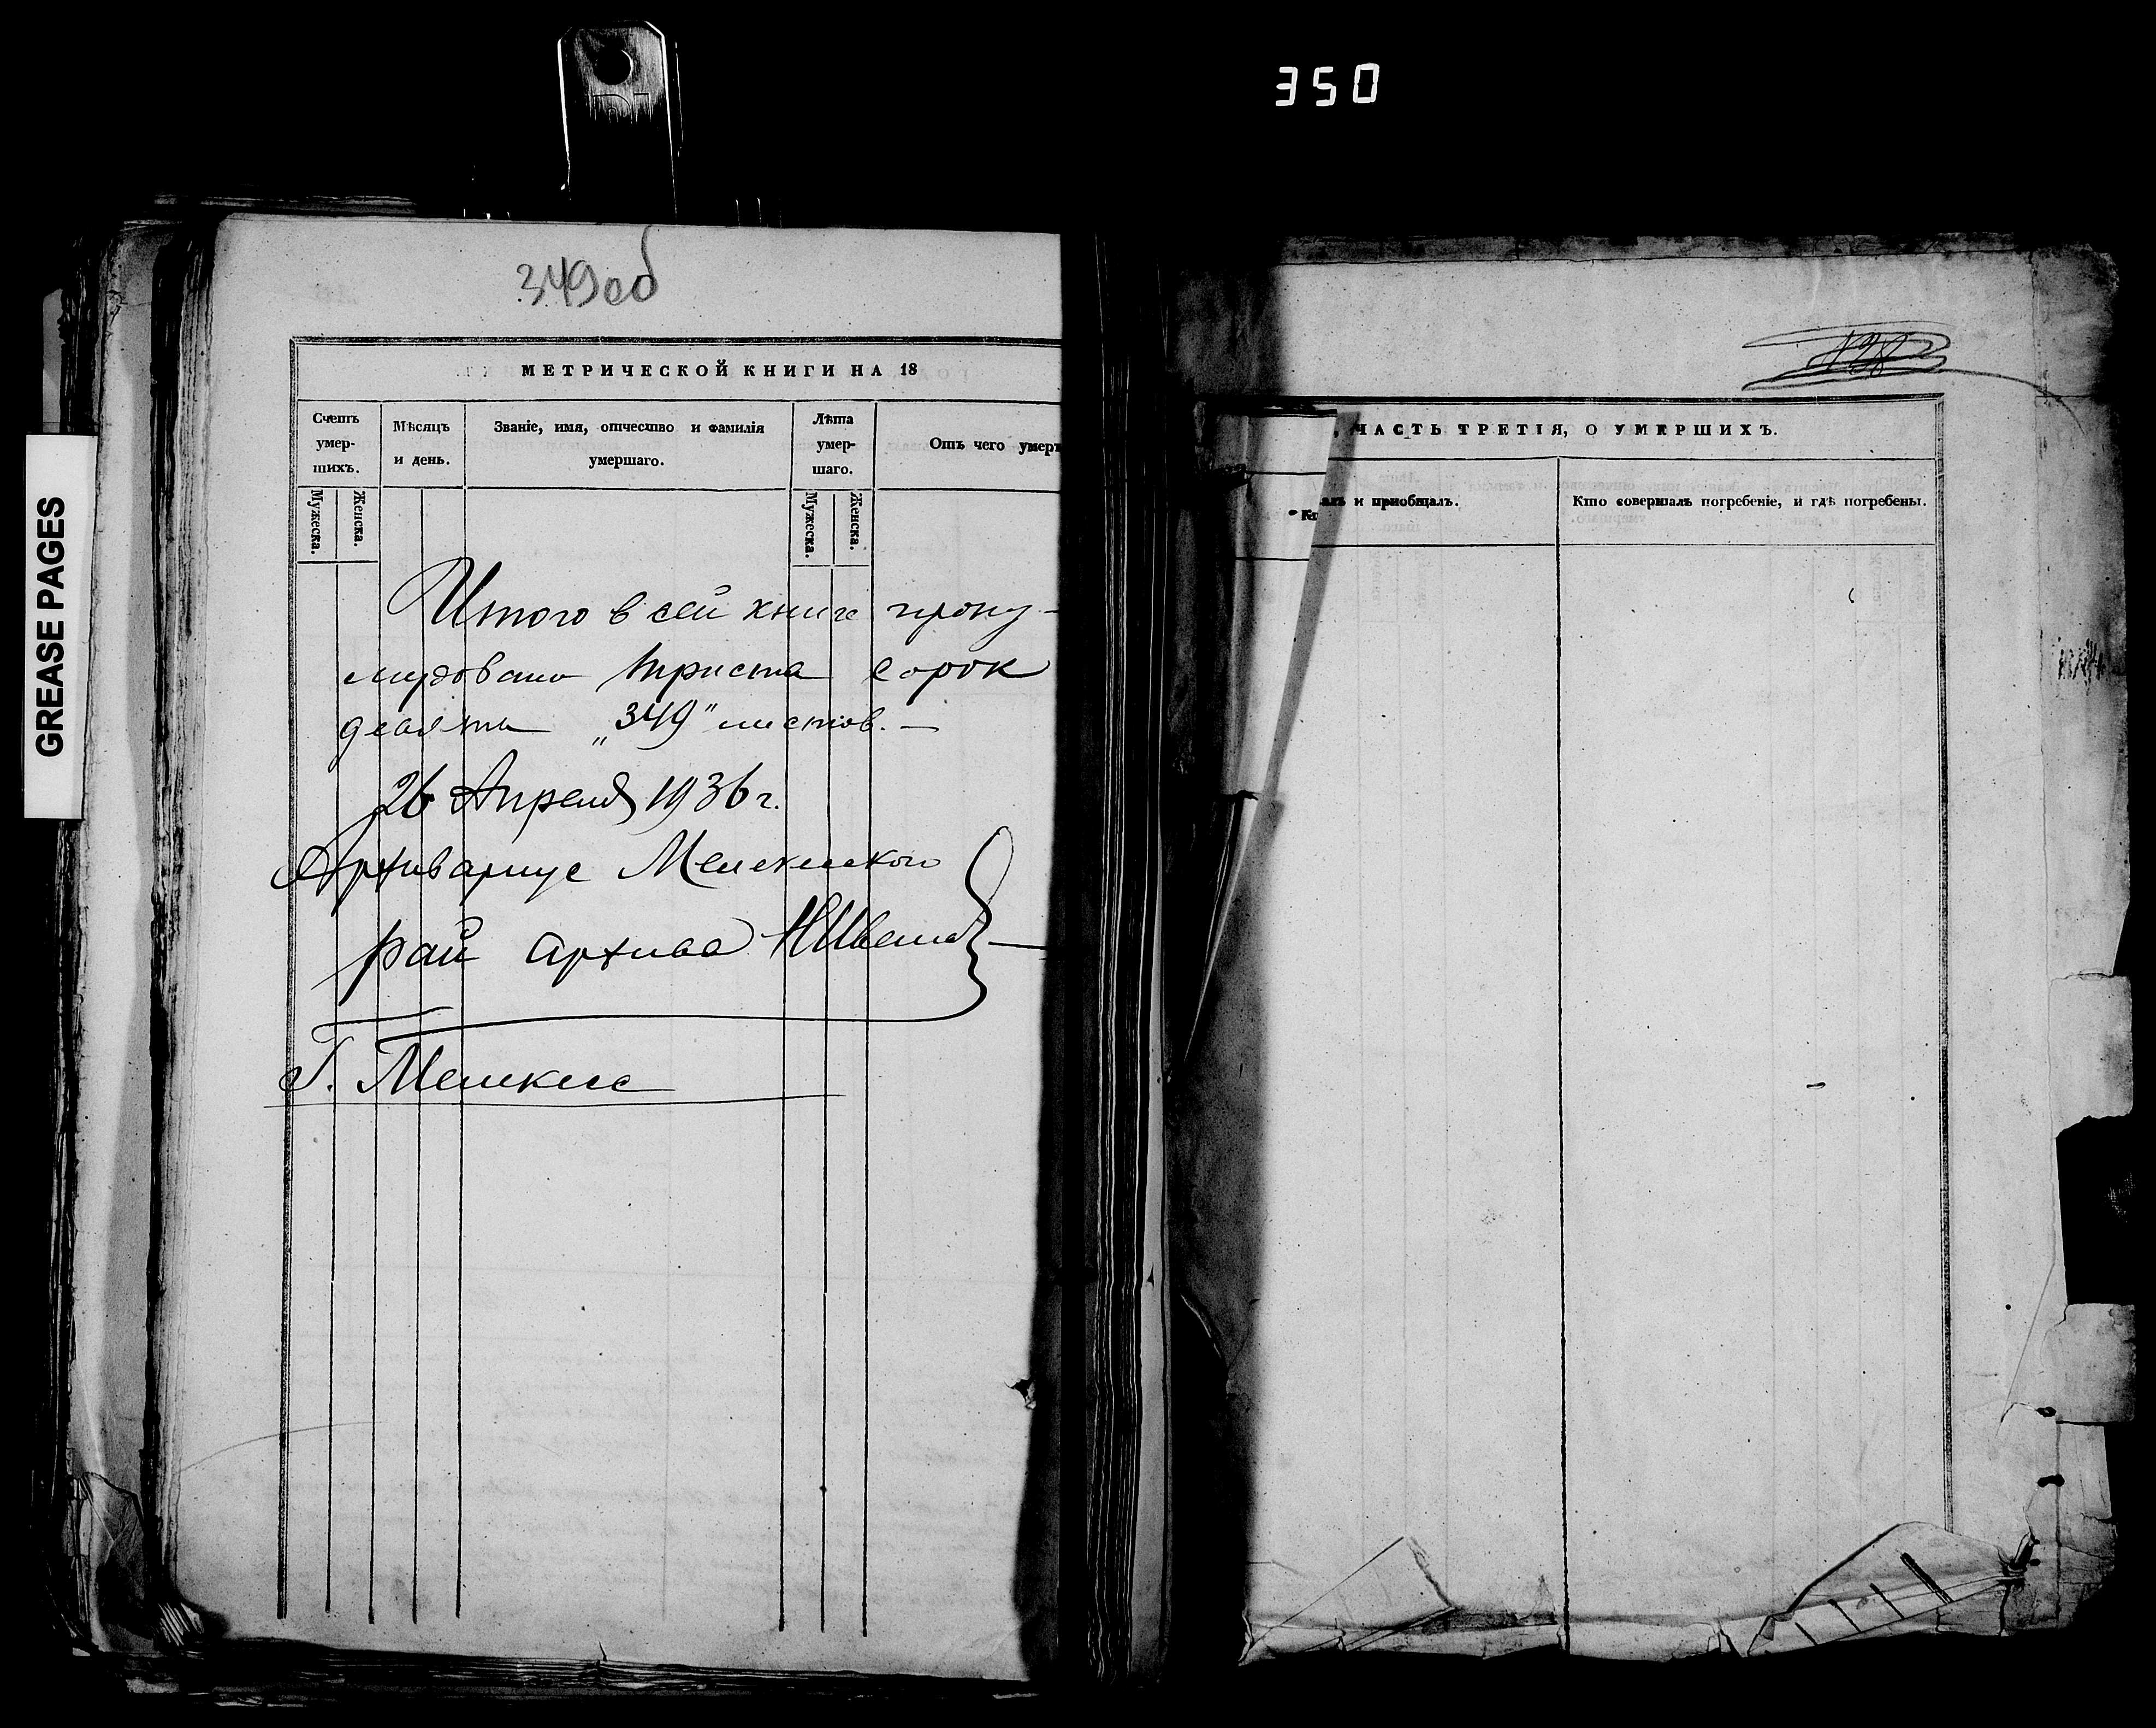 350
349об
МЕТРИЧЕСКОЙ КНИГИ НА 18
Счетъ умер-шихъ.
Мужеска.
Женска.
Мѣсяцъ и день.
Званіе, имя, отчество и фамилія умершаго.
Лѣта умер-шаго.
Мужеска.
Женска.
Отъ чего умеръ
Итого в сей книге прону-
мировано триста сорок
девять „349" листов. —
26 Апреля 1936 г.
Архивариус Мелекесского
рай архива
Г. Мелекесс
GREASE PAGES
, ЧАСТЬ ТРЕТІЯ, О УМЕРШИХЪ.
алъ и пріобщалъ.
Кто совершалъ погребеніе, и гдѣ погребены.